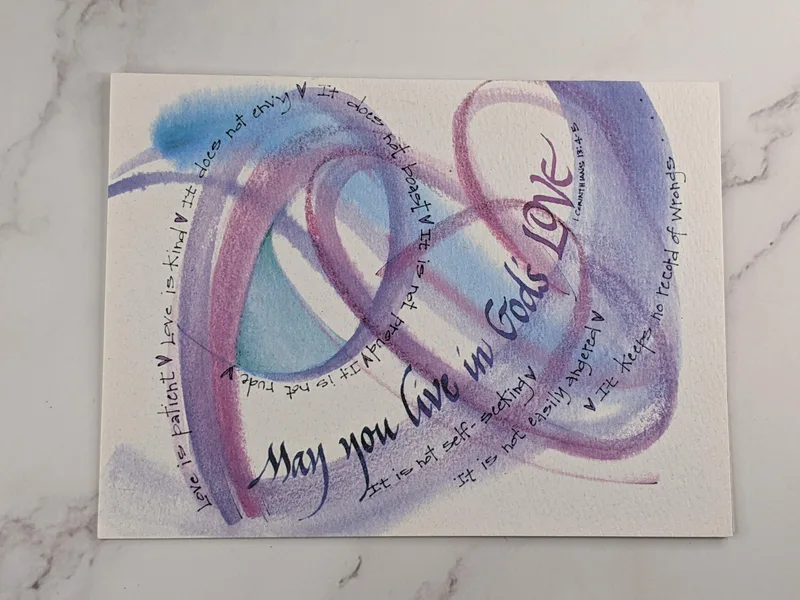 Love is patient ♥ Love is kind ♥ It does not envy ♥ It does not boast ♥ It is not proud ♥ It is not rude ♥
May you live in God's LOVE
1 CORINTHIANS 13:4-5
It is not self-seeking ♥
It is not easily angered ♥
♥ It keeps no record of wrongs.